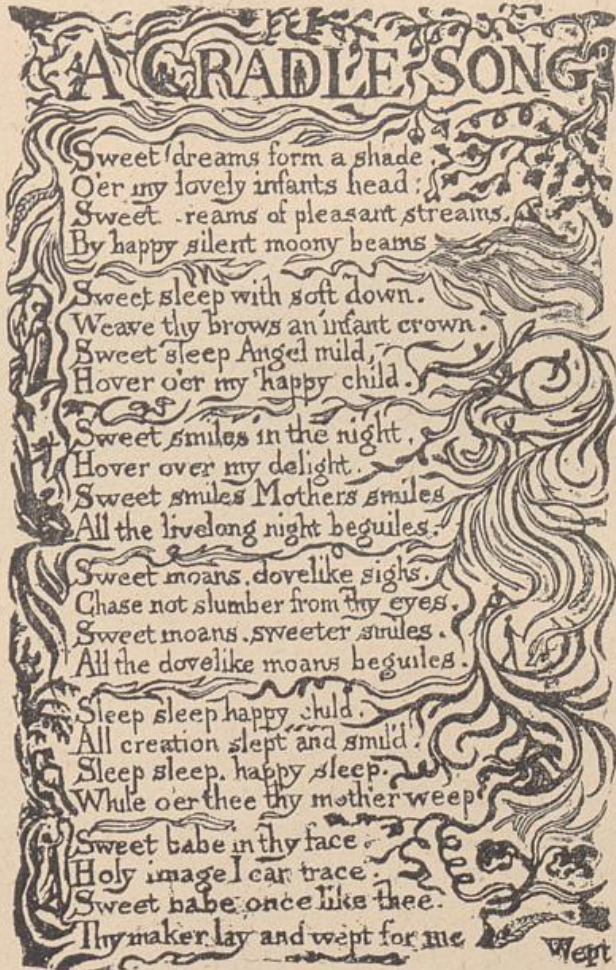 A CRADLE SONG
Sweet dreams form a shade.
O'er my lovely infants head:
Sweet reams of pleasant streams.
By happy silent moony beams
Sweet sleep with soft down.
Weave thy brows an infant crown.
Sweet sleep Angel mild,
Hover o'er my happy child.
Sweet smiles in the night.
Hover over my delight.
Sweet smiles Mothers smiles
All the livelong night beguiles.
Sweet moans, dovelike sighs.
Chase not slumber from thy eyes.
Sweet moans, sweeter smiles.
All the dovelike moans beguiles.
Sleep sleep happy child.
All creation slept and smil'd.
Sleep sleep, happy sleep.
While o'er thee thy mother weep
Sweet babe in thy face.
Holy image I can trace.
Sweet babe once like thee.
Thy maker lay and wept for me
Wept